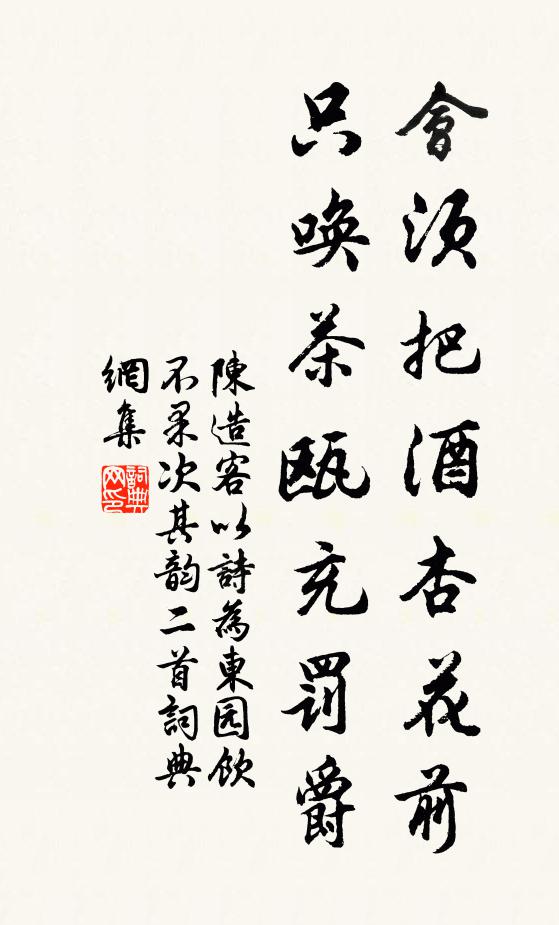 會須把酒杏花前
只唤茶瓯充罰爵
陳造客以詩為東园飲
不果次其韵二首詞典
網集
詞典網印